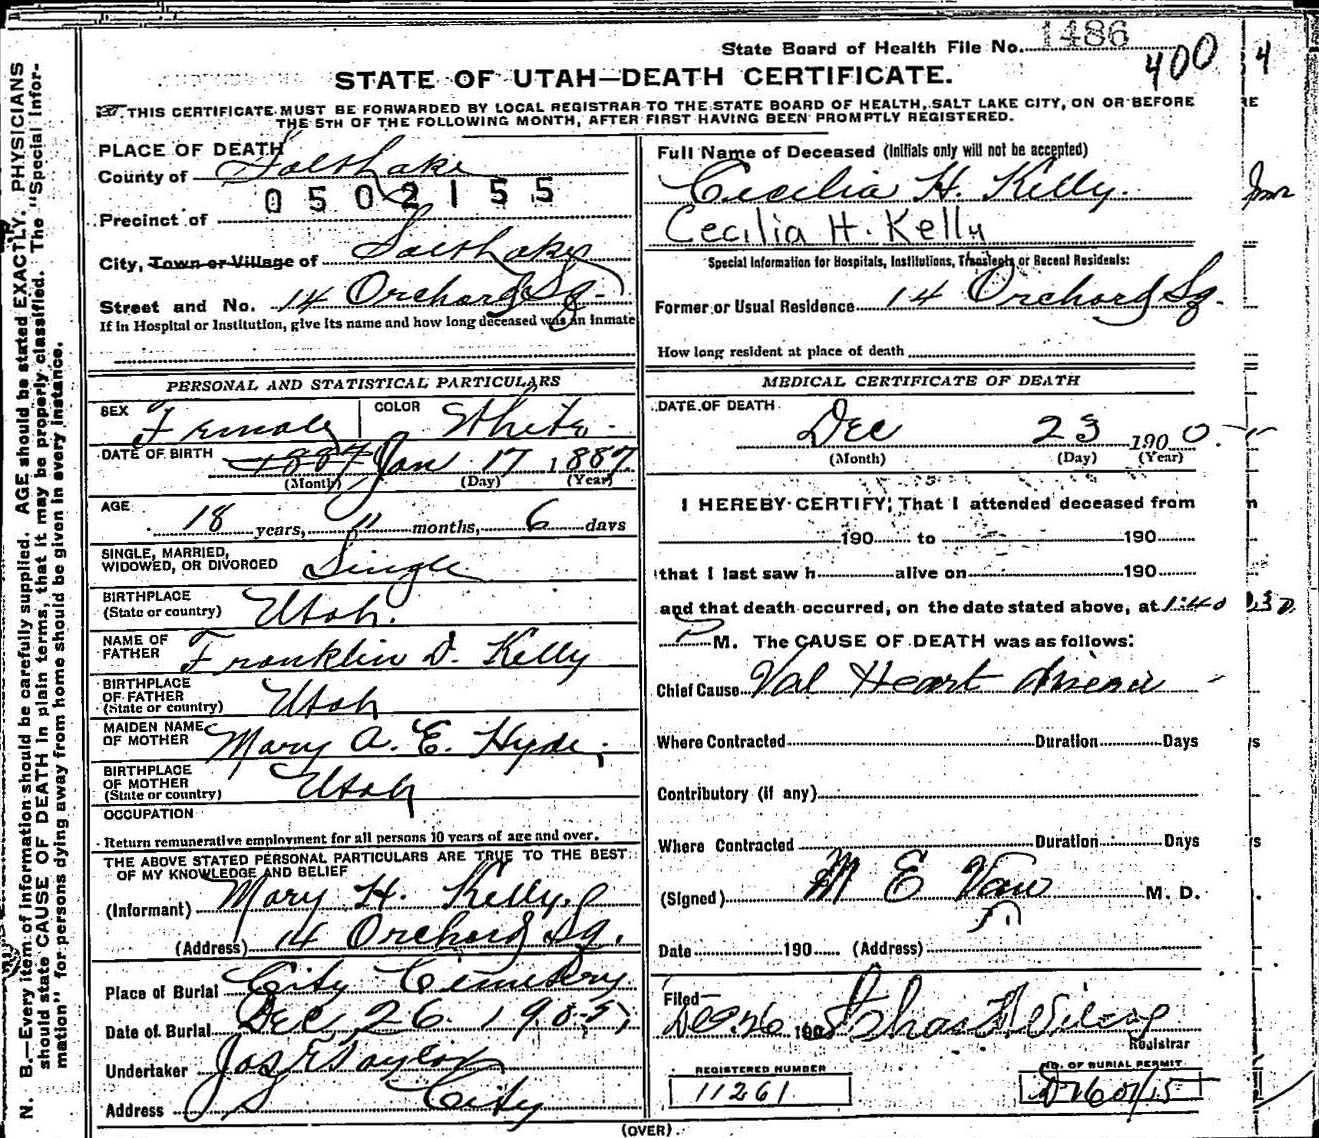 State Board of Health File No. 1486
400
4
STATE OF UTAH—DEATH CERTIFICATE.
THIS CERTIFICATE MUST BE FORWARDED BY LOCAL REGISTRAR TO THE STATE BOARD OF HEALTH, SALT LAKE CITY, ON OR BEFORE
THE 5TH OF THE FOLLOWING MONTH, AFTER FIRST HAVING BEEN PROMPTLY REGISTERED.
PLACE OF DEATH
County of Salt Lake
0502155
Precinct of
City, Town or Village of Salt Lake
Street and No. 14 Orchard Sq.
If in Hospital or Institution, give its name and how long deceased was an Inmate
PERSONAL AND STATISTICAL PARTICULARS
SEX Female COLOR White
DATE OF BIRTH 1887 Jan 17 1887
(Month) (Day) (Year)
AGE
18 years, 11 months, 6 days
SINGLE, MARRIED,
WIDOWED, OR DIVORCED Single
BIRTHPLACE
(State or country) Utah.
NAME OF
FATHER Franklin D. Kelly
BIRTHPLACE
OF FATHER
(State or country) Utah
MAIDEN NAME
OF MOTHER Mary A. E. Hyde
BIRTHPLACE
OF MOTHER
(State or country) Utah
OCCUPATION
Return remunerative employment for all persons 10 years of age and over.
THE ABOVE STATED PERSONAL PARTICULARS ARE TRUE TO THE BEST
OF MY KNOWLEDGE AND BELIEF
(Informant) Mary H. Kelly
(Address) 14 Orchard Sq.
Place of Burial City Cemetery
Date of Burial Dec 26 1905
Undertaker Jos E Taylor
Address City
Full Name of Deceased (Initials only will not be accepted)
Cecilia H. Kelly.
Cecilia H. Kelly
Special Information for Hospitals, Institutions, Transients or Recent Residents:
Former or Usual Residence 14 Orchard Sq.
How long resident at place of death
MEDICAL CERTIFICATE OF DEATH
DATE OF DEATH
Dec 23 1900.
(Month) (Day) (Year)
I HEREBY CERTIFY, That I attended deceased from
190 to 190
that I last saw h alive on 190
and that death occurred, on the date stated above, at 1:40
P M. The CAUSE OF DEATH was as follows:
Chief Cause Val Heart disease
Where Contracted Duration Days
Contributory (if any)
Where Contracted Duration Days
(Signed) M E Van M. D.
Date 190 (Address)
Filed
Dec 26 190
Registrar
REGISTERED NUMBER
11261
NO. OF BURIAL PERMIT
(OVER)
N. B.—Every item of information should be carefully supplied. AGE should be stated EXACTLY. PHYSICIANS
should state CAUSE OF DEATH in plain terms, that it may be properly classified. The "Special Infor-
mation" for persons dying away from home should be given in every instance.